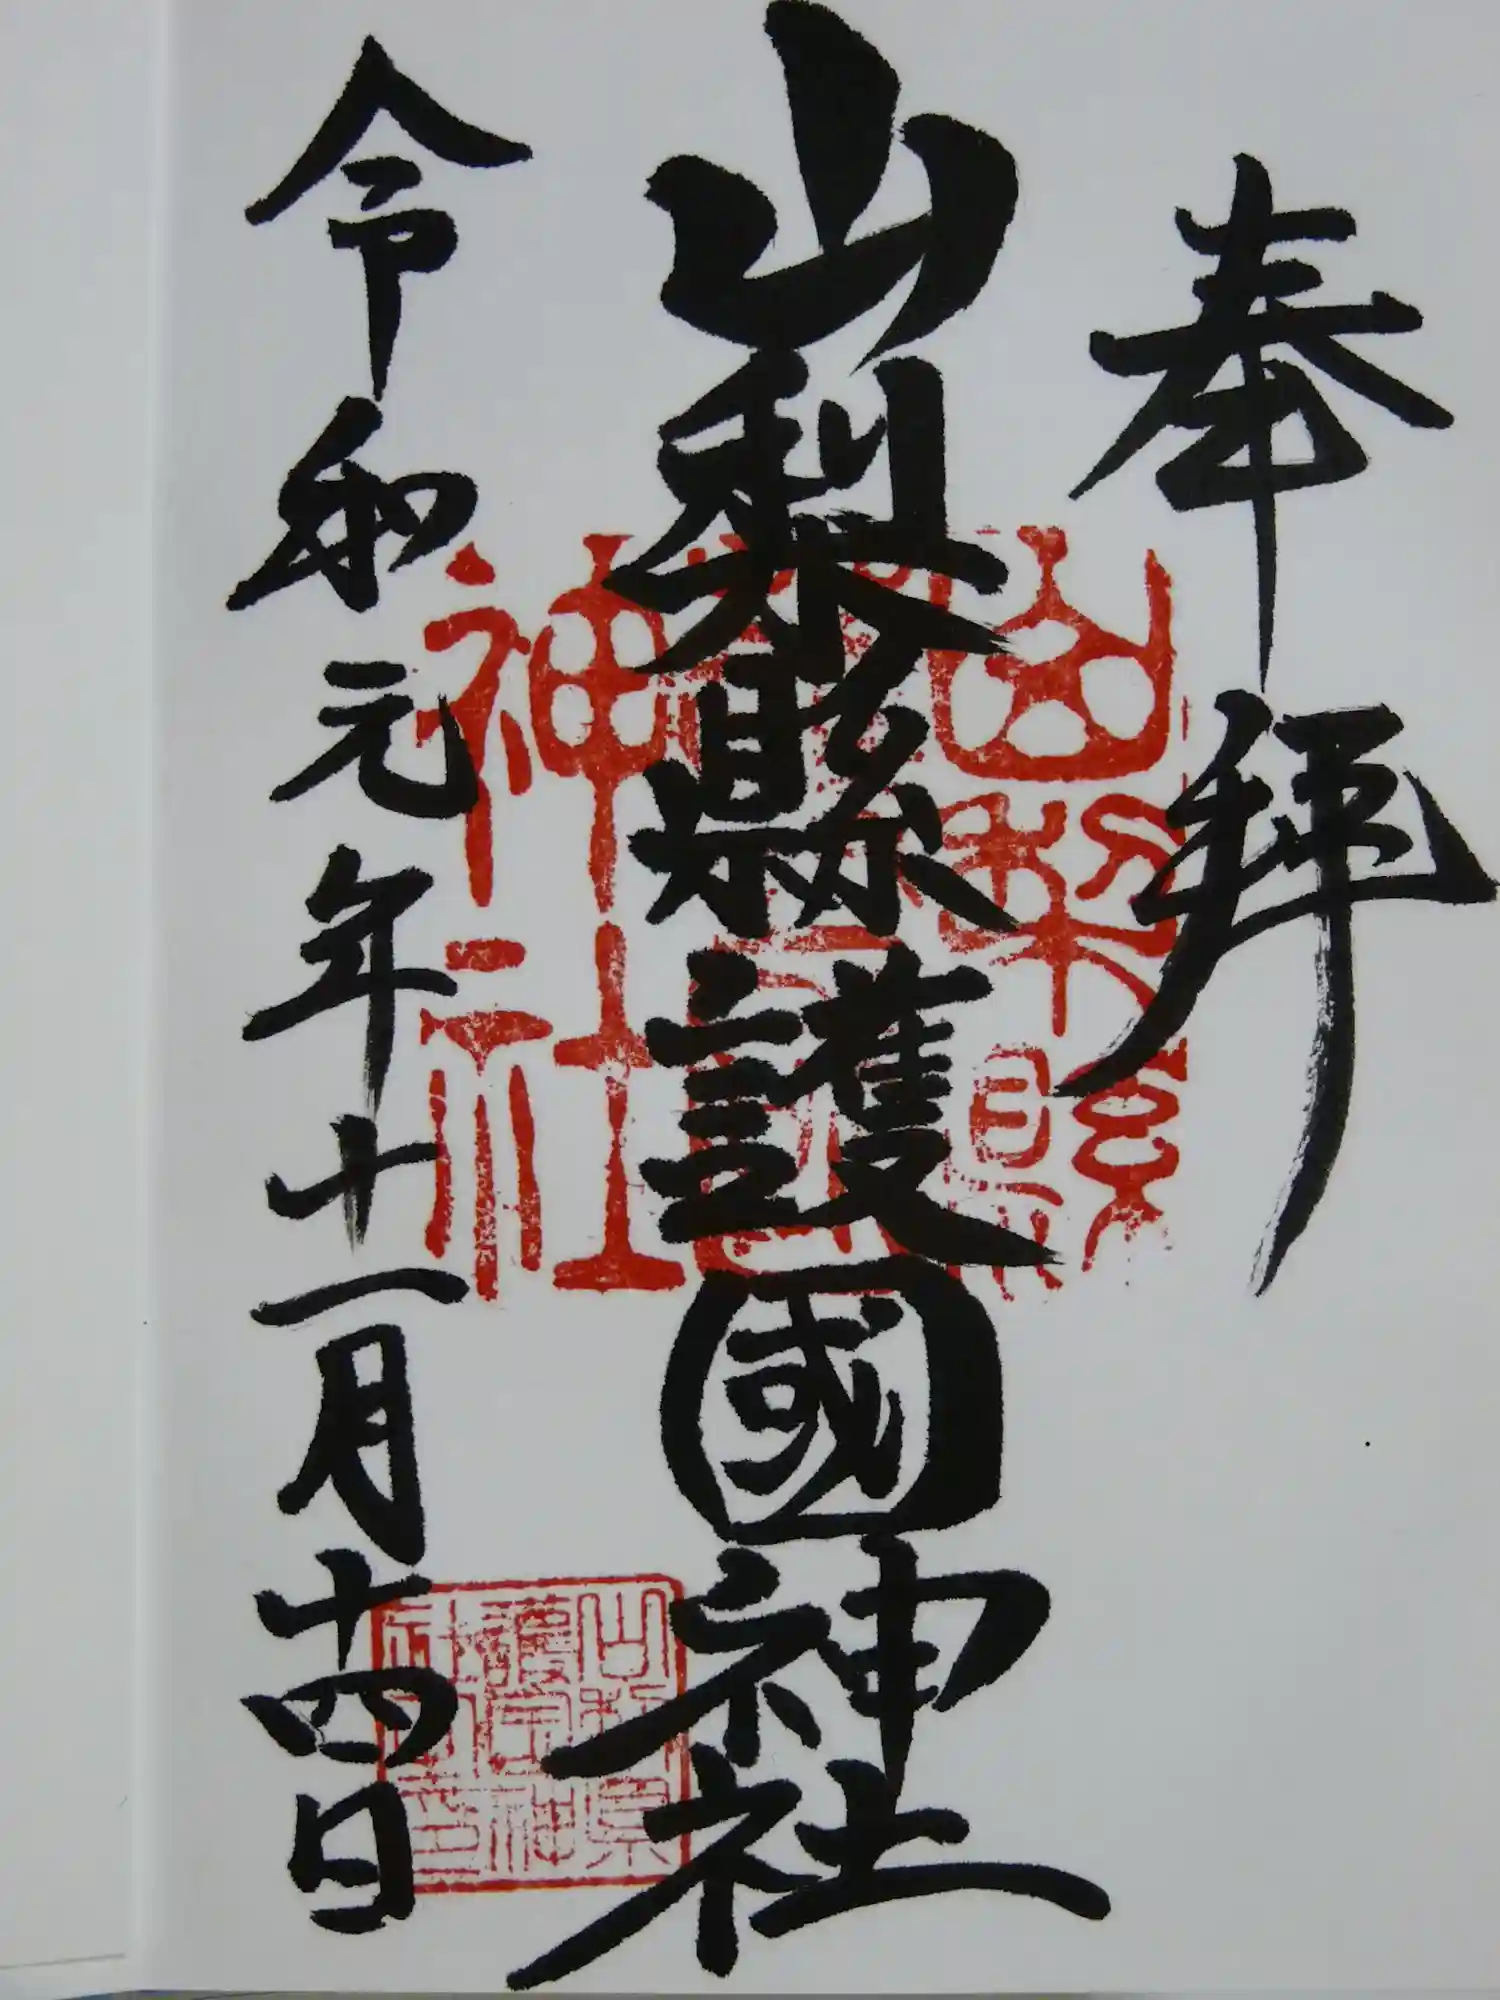 奉拝
山梨縣護國神社
令和元年十一月十四日
山梨縣
護國
神社
山梨県
護国神
社之印